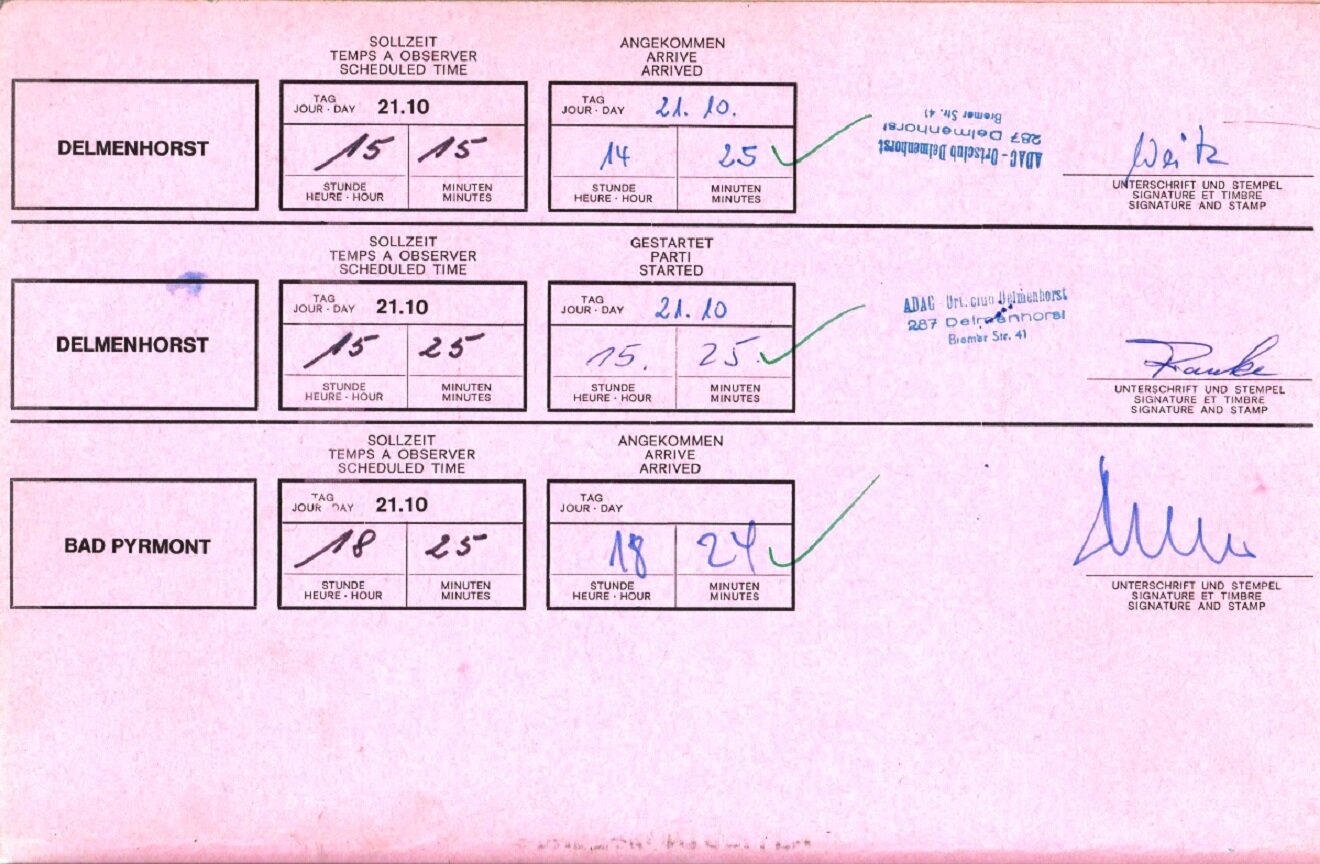 SOLLZEIT
TEMPS A OBSERVER
SCHEDULED TIME
ANGEKOMMEN
ARRIVE
ARRIVED
DELMENHORST
TAG
JOUR · DAY 21.10
15 15
STUNDE
HEURE · HOUR
MINUTEN
MINUTES
TAG
JOUR · DAY 21. 10.
14 25
STUNDE
HEURE · HOUR
MINUTEN
MINUTES
ADAC - Ortsclub Delmenhorst
287 Delmenhorst
Bremer Str. 41
Weitz
UNTERSCHRIFT UND STEMPEL
SIGNATURE ET TIMBRE
SIGNATURE AND STAMP
SOLLZEIT
TEMPS A OBSERVER
SCHEDULED TIME
GESTARTET
PARTI
STARTED
DELMENHORST
TAG
JOUR · DAY 21.10
15 25
STUNDE
HEURE · HOUR
MINUTEN
MINUTES
TAG
JOUR · DAY 21. 10
15. 25.
STUNDE
HEURE · HOUR
MINUTEN
MINUTES
ADAC Ortsclub Delmenhorst
287 Delmenhorst
Bremer Str. 41
Franke
UNTERSCHRIFT UND STEMPEL
SIGNATURE ET TIMBRE
SIGNATURE AND STAMP
SOLLZEIT
TEMPS A OBSERVER
SCHEDULED TIME
ANGEKOMMEN
ARRIVE
ARRIVED
BAD PYRMONT
TAG
JOUR DAY 21.10
18 25
STUNDE
HEURE · HOUR
MINUTEN
MINUTES
TAG
JOUR · DAY
18 24
STUNDE
HEURE · HOUR
MINUTEN
MINUTES
UNTERSCHRIFT UND STEMPEL
SIGNATURE ET TIMBRE
SIGNATURE AND STAMP